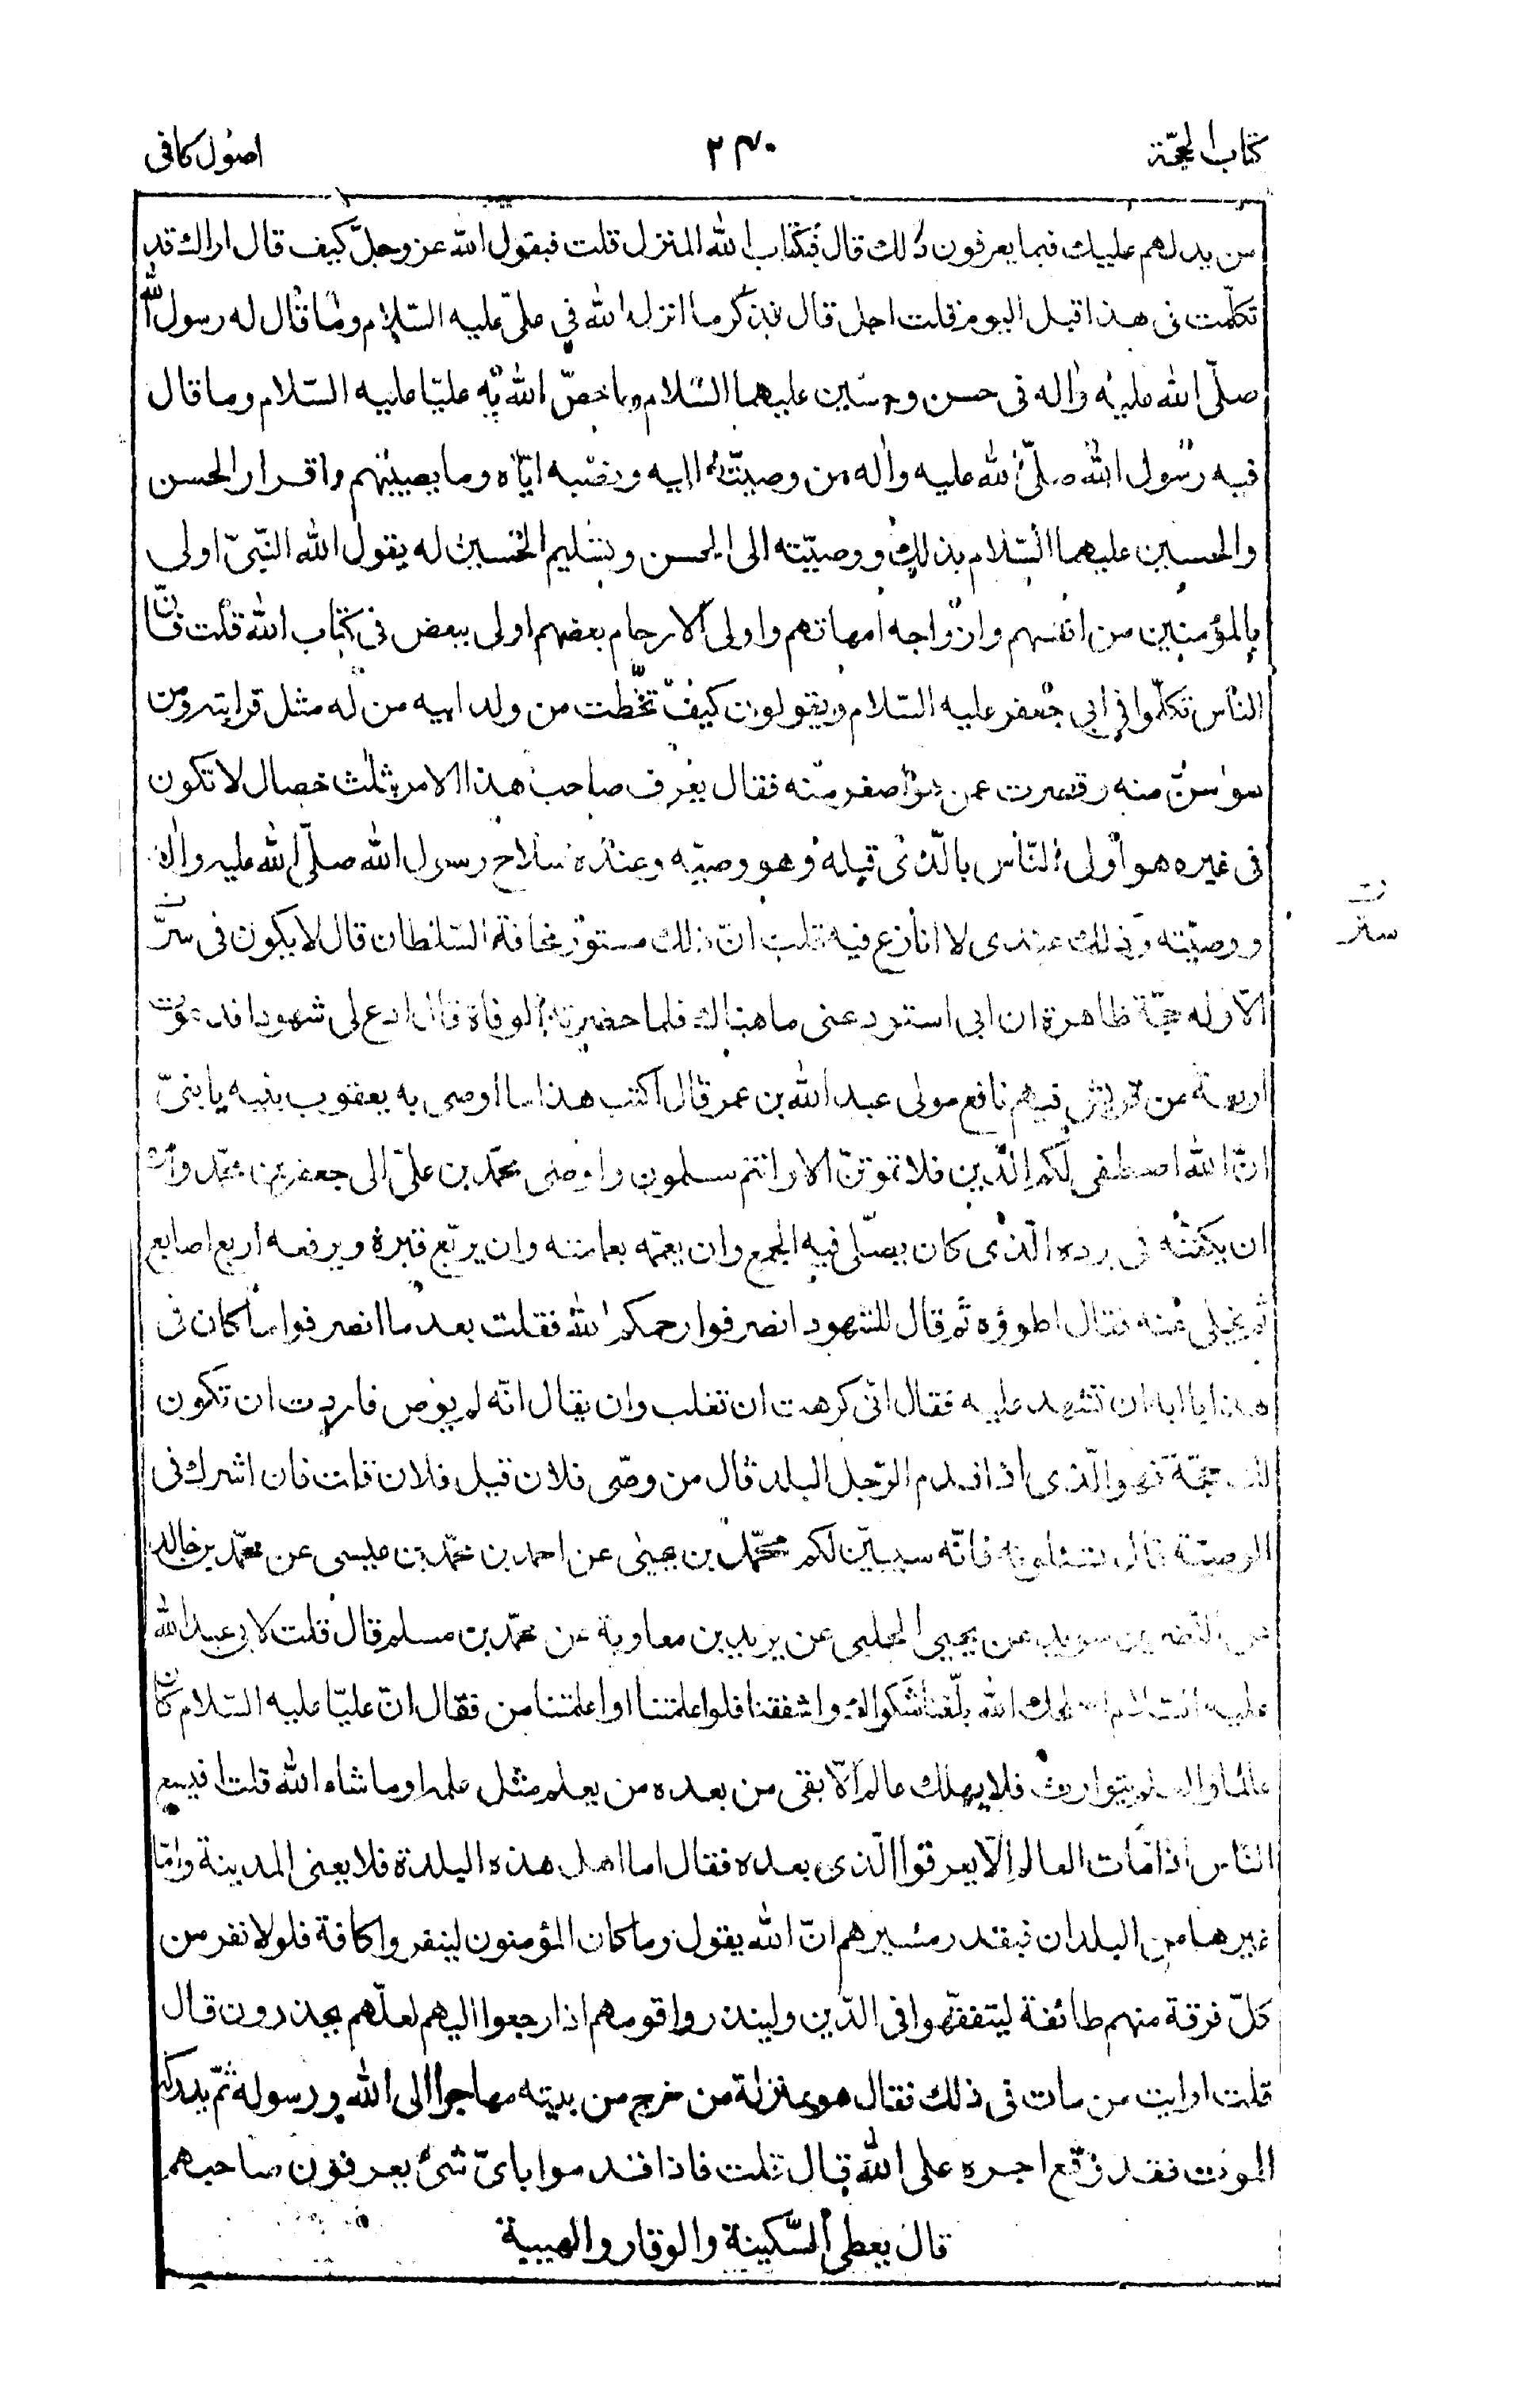 كتاب الحجّة
٢٤٠
اصول كافى
من يدلهم عليك فيما يعرفون ذلك قال فبكتاب الله المنزل قلت فيقول الله عز وجلّ كيف قال اراك قد
تكلّمت فى هذا قبل اليوم قلت اجل قال فذكر ما انزل الله فى علىّ عليه السّلام وما قال له رسول الله
صلّى الله عليه واله فى حسن وحسين عليهما السّلام وما خصّ الله به عليّا عليه السّلام وما قال
فيه رسول الله صلّى الله عليه واله من وصيّته اليه ونصبه ايّاه وما يصيبهم واقرار الحسن
والحسين عليهما السّلام بذلك ووصيّته الى الحسن وتسليم الحسين له يقول الله النّبىّ اولى
بالمؤمنين من انفسهم وازواجه امهاتهم واولى الارحام بعضهم اولى ببعض فى كتاب الله قلت فانّ
الناس تكلّموا فى ابى جعفر عليه السّلام ويقولون كيف تخّطت من ولد ابيه من له مثل قرابته ومن
هو اسنّ منه وقصرت عمن هو اصغر منه فقال يعرف صاحب هذا الامر بثلث خصال لا تكون
فى غيره هو اولى النّاس بالّذى قبله وهو وصيّه وعنده سلاح رسول الله صلّى الله عليه واله
ووصيّته وذلك عندى لا انازع فيه قلت انّ ذلك مستور مخافة السّلطان قال لا يكون فى ستر
ستر
الّا وله حجّة ظاهرة ان ابى استودعنى ما هناك فلما حضرته الوفاة قال ادع لى شهودا فدعوت
اربعة من قريش فيهم نافع مولى عبد الله بن عمر قال اكتب هذا ما اوصى به يعقوب بنيه يا بنىّ
انّ الله اصطفى لكم الدّين فلا تموتنّ الا وانتم مسلمون واوصى محمّد بن علىّ الى جعفر بن محمّد وامره
ان يكفّنه فى برده الّذى كان يصلّى فيه الجمع وان يعمّه بعمامته وان يربّع قبره ويرفعه اربع اصابع
ثم يخلى عنه فقال اطووه ثم قال للشهود انصرفوا رحمكم الله فقلت بعد ما انصرفوا ما كان فى
هذا يا ابه ان تشهد عليه فقال انّى كرهت ان تغلب وان يقال انّه لم يوص فاردت ان تكون
لك حجّة فهو الّذى اذا قدم الرّجل البلد قال من وصّى فلان قيل فلان قلت فان اشرك فى
الوصيّة قال تسئلونه فانّه سيبيّن لكم محمّد بن يحيى عن احمد بن محمّد بن عيسى عن محمّد بن خالد
عن النّضر بن سويد عن يحيى الحلبى عن بريد بن معاوية عن محمّد بن مسلم قال قلت لابى عبد الله
عليه السّلام اصلحك الله بلّغنا شكواك واشفقنا فلو اعلمتنا او اعلمتنا من فقال انّ عليّا عليه السّلام كان
عالما والعلم يتوارث فلا يهلك عالم الّا بقى من بعده من يعلم مثل علمه او ما شاء الله قلت افيسع
النّاس اذا مات العالم الّا يعرفوا الّذى بعده فقال اما اهل هذه البلدة فلا يعنى المدينة وامّا
غيرها من البلدان فبقدر مسيرهم انّ الله يقول وما كان المؤمنون لينفروا كافة فلولا نفر من
كلّ فرقة منهم طائفة ليتفقّهوا فى الدّين ولينذروا قومهم اذا رجعوا اليهم لعلّهم يحذرون قال
قلت ارايت من مات فى ذلك فقال هو بمنزلة من خرج من بيته مهاجرا الى الله ورسوله ثمّ يدركه
الموت فقد وقع اجره على الله قال قلت فاذا قدموا باىّ شىء يعرفون صاحبهم
قال يعطى السّكينة والوقار والهيبة